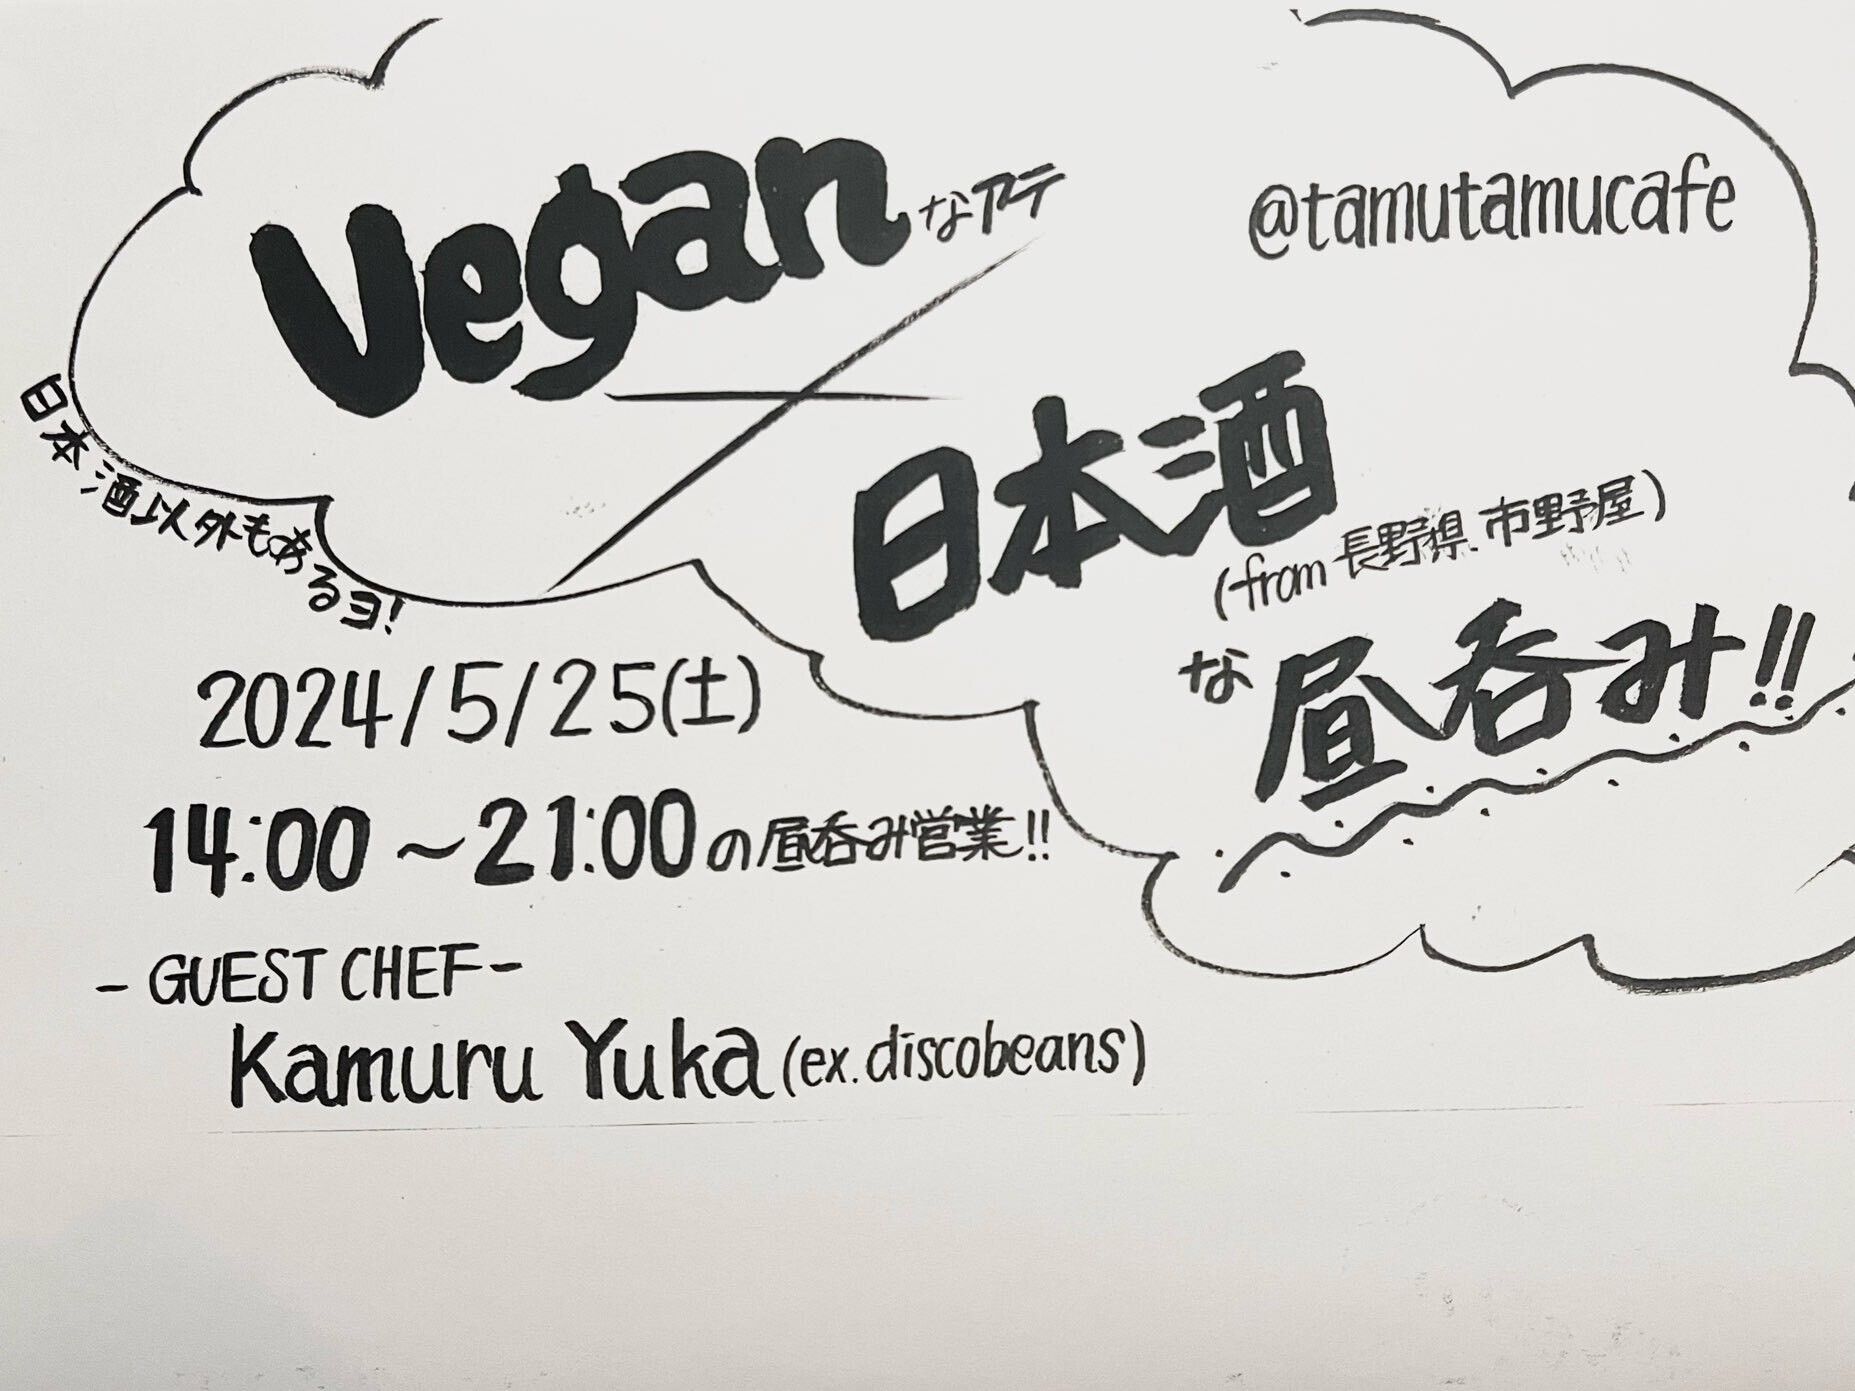 Veganなアテ
@tamutamucafe
×
日本酒
(from 長野県.市野屋)
な昼呑み!!
日本酒以外もあるヨ!
2024/5/25(土)
14:00～21:00の昼呑み営業!!
-GUEST CHEF-
Kamuru Yuka (ex.discobeans)